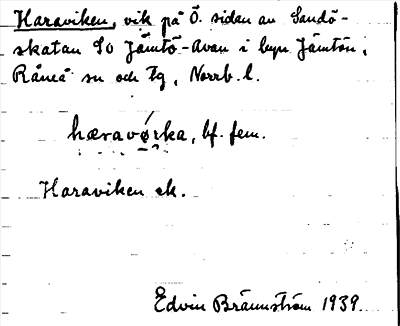 Haraviken, vik på Ö. sidan av Sandö-
skatan So Jämtö-Avan i byn Jämtön,
Råneå sn och tg, Norrb. l.
hæravø̨rka, bf. fem.
Haraviken ek.
Edvin Brännström 1939.